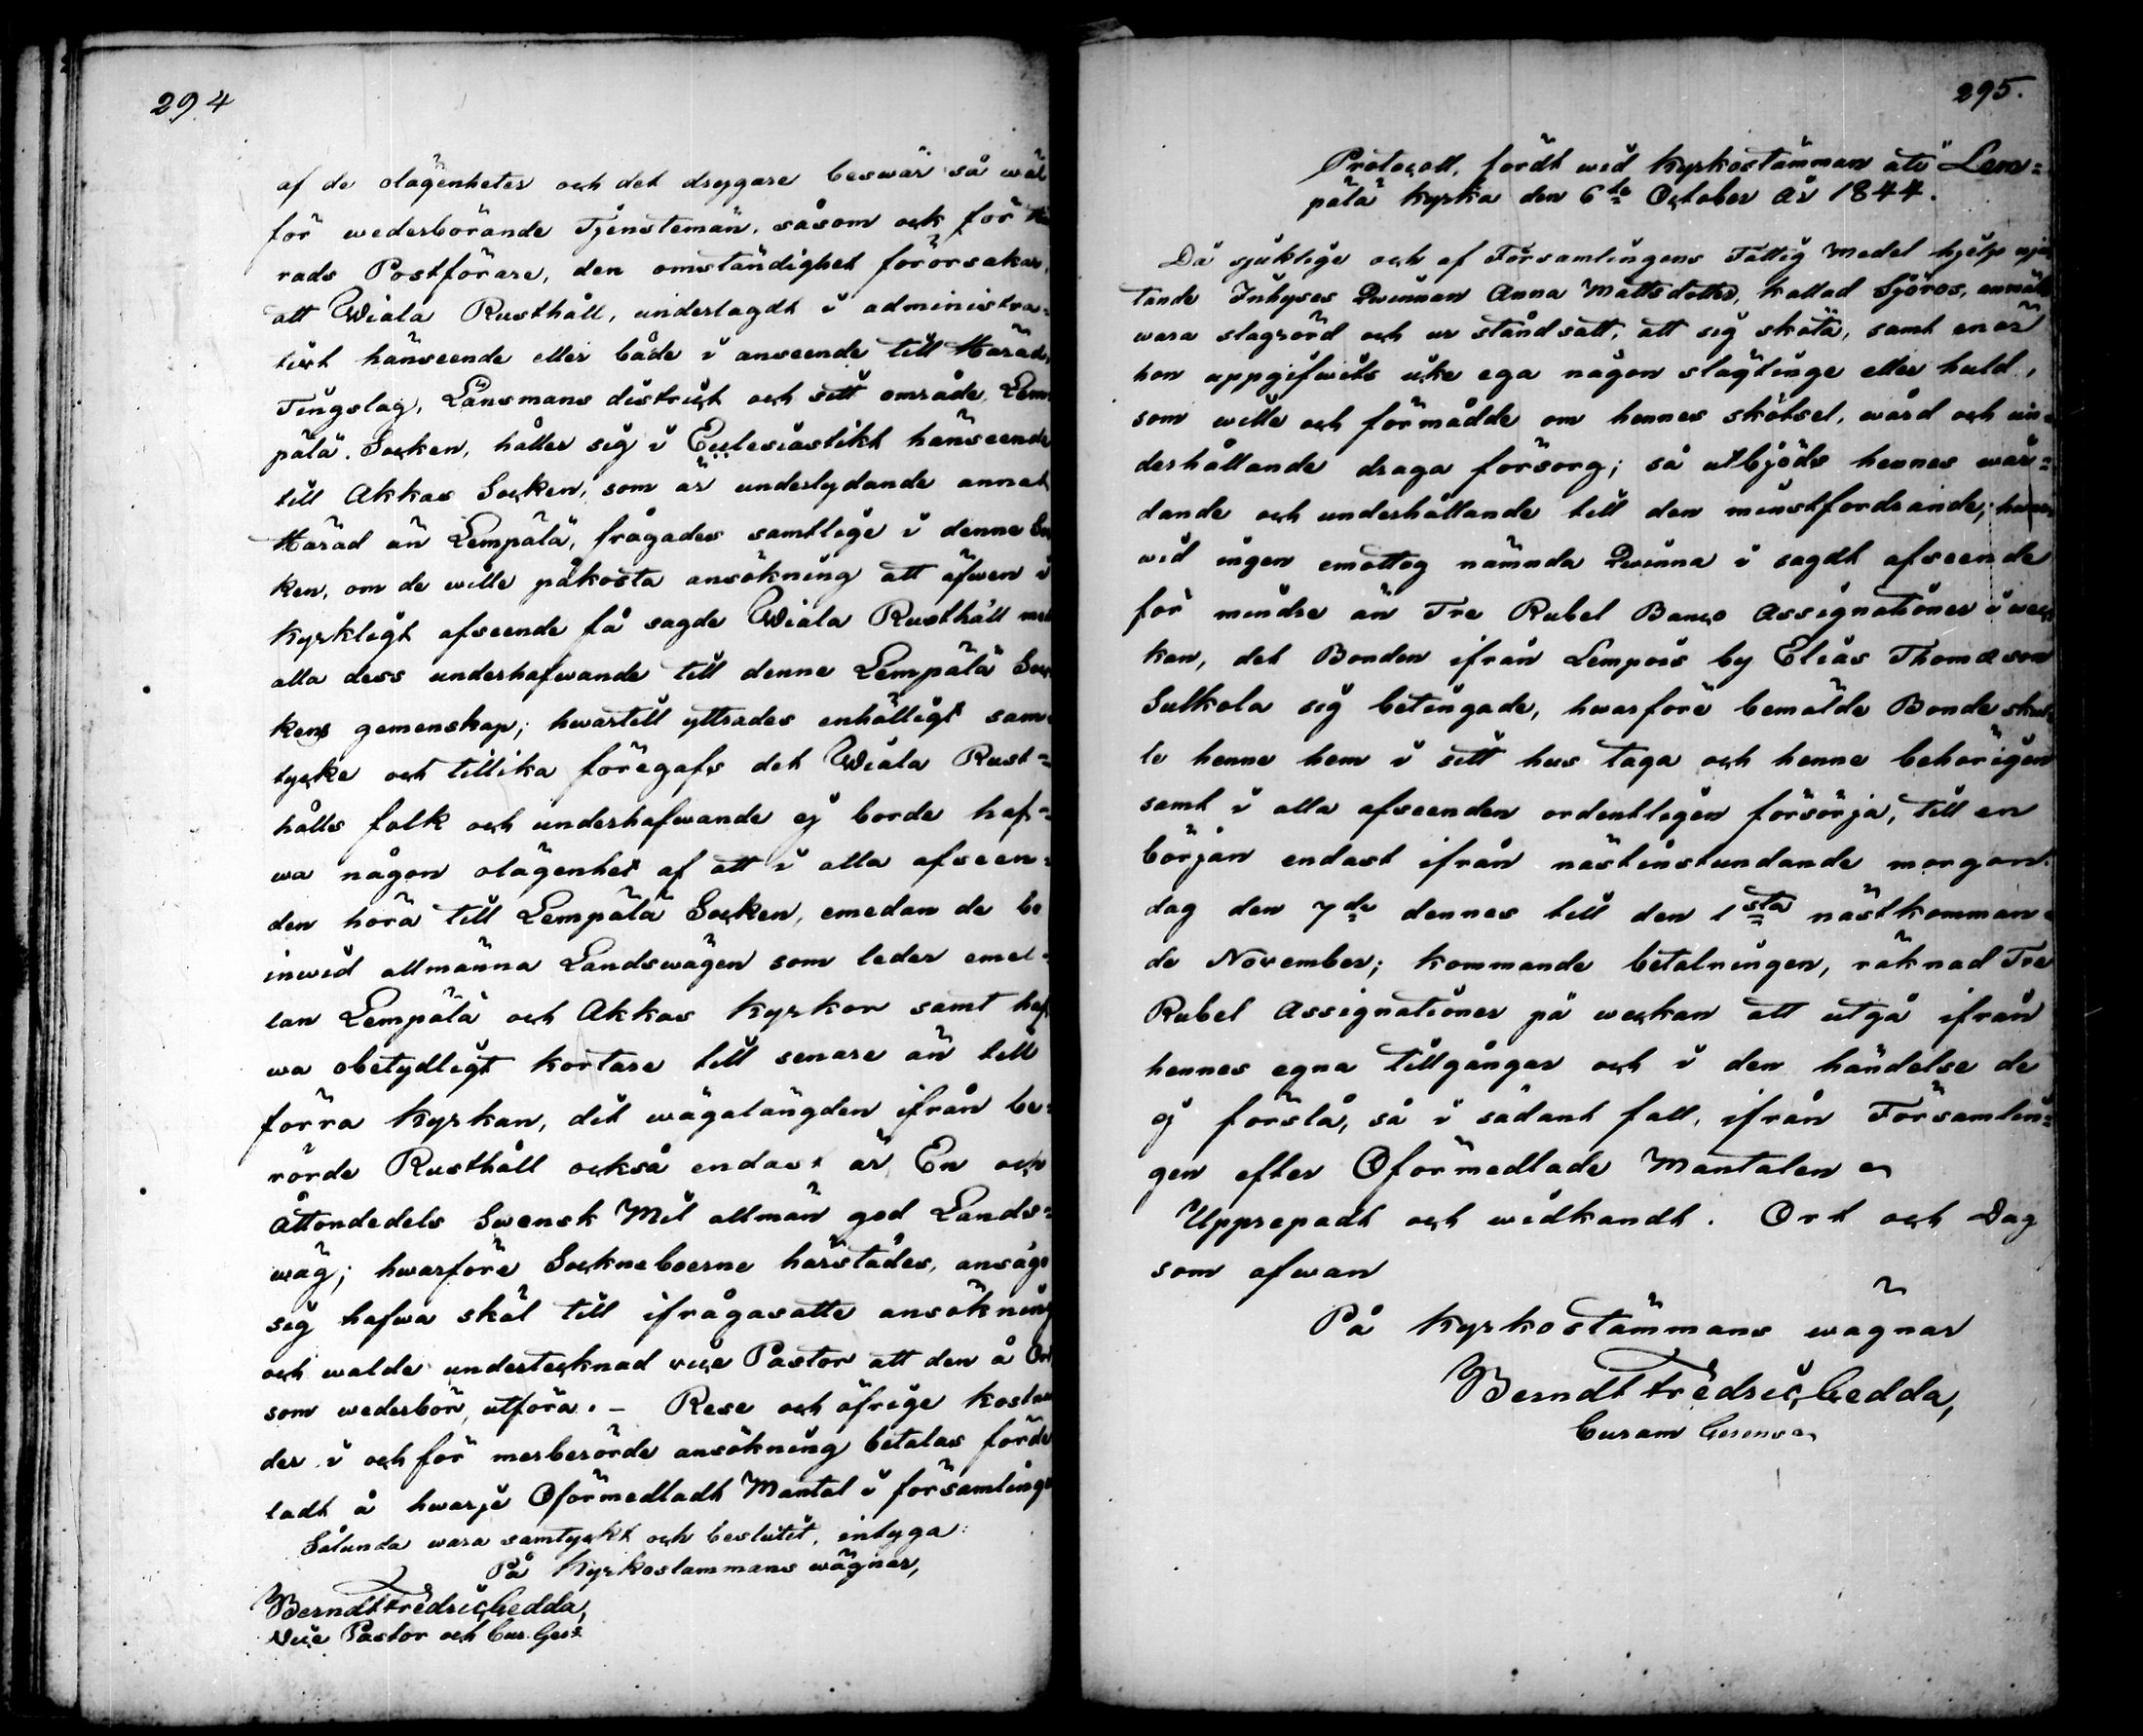 294
af de olägenheter och det drygare beswär så wäl
för wederbörande Tjenstemän, såsom ock för Hä
rads Postförare, den omständighet förorsakar,
att Wiala Rusthåll, underlagdt i administra=
tivt hänseende eller både i anseende till Härad,
Tingslag, Länsmans district och sitt område, Lem
pälä Socken, håller sig i Ecclesiastikt hänseende
till Akkas Socken, som är underlydande annat
Härad än Lempälä, frågades samtlige i denne Soc
ken, om de wille påkosta ansökning att äfwen i
Kyrkligt afseende få sagde Wiala Rusthåll med
alla dess underhafwande till denne Lempälä Soc
kens gemenskap; hwartill yttrades enhälligt sam
tycke och tillika föregafs det Wiala Rust=
hålls folk och underhafwande ej borde haf=
wa någon olägenhet af att i alla afseen=
den höra till Lempälä Socken, emedan de bo
inwid allmänna Landswägen som leder emel=
lan Lempälä och Akkas Kyrkor samt haf
wa obetydligt kortare till senare än till
förra Kyrkan, dit wägalängden ifrån be=
rörde Rusthåll också endast är En och
Åttondedels Swensk Mil allmän god Lands=
wäg; hwarföre Sockneboerne härstädes, ansågo
sig hafwa skäl till ifrågasatte ansökning
och walde undertecknad vice Pastor att den å Ort
som wederbör, utföra. – Rese och öfrige kostna
der i och för merberörde ansökning betalas förde
ladt å hwarje Oförmedladt Mantal i församlinge
Sålunda wara samtyckt och beslutit, intyga:
På Kyrkostämmans wägnar,
Berndt Fredric Gedda,
Vice Pastor och Cur. Ger:s
295.
Protocoll, fördt wid Kyrkostämman uti Lem=
pälä Kyrka den 6te October År 1844.
Då sjuklige och af Församlingens Fattig Medel hjelp nju
tande Inhyses Qwinnan Anna Mattsdotter, kallad Sjöros, anmält
wara slagrörd och ur stånd satt, att sig sköta, samt enär
hon uppgifwits icke ega någon slägtinge eller huld,
som wille och förmådde om hennes skötsel, wård och un=
derhållande draga försorg; så utbjöds hennes wår=
dande och underhållande till den minstfordrande; hwar
wid ingen emottog nämnda Qwinna i sagdt afseende
för mindre än Tre Rubel Banco Assignationer i wec
kan, det Bonden ifrån Lempois by Elias Thomæson
Sulkola sig betingade, hwarföre bemälde Bonde skul
le henne hem i sitt hus taga och henne behörigen
samt i alla afseenden ordentligen försörja, till en
början endast ifrån nästinstundande morgon
dag den 7de dennes till den 1sta nästkomman=
de November; kommande betalningen, räknad Tre
Rubel Assignationer på weckan att utgå ifrån
hennes egna tillgångar och i den händelse de
ej förslå, så i sådant fall, ifrån Församlin=
gen efter Oförmedlade Mantalen
Upprepadt och widkändt. Ort och Dag
som ofwan
På Kyrkostämmans wägnar
Berndt Fredric Gedda,
Curam Gerens